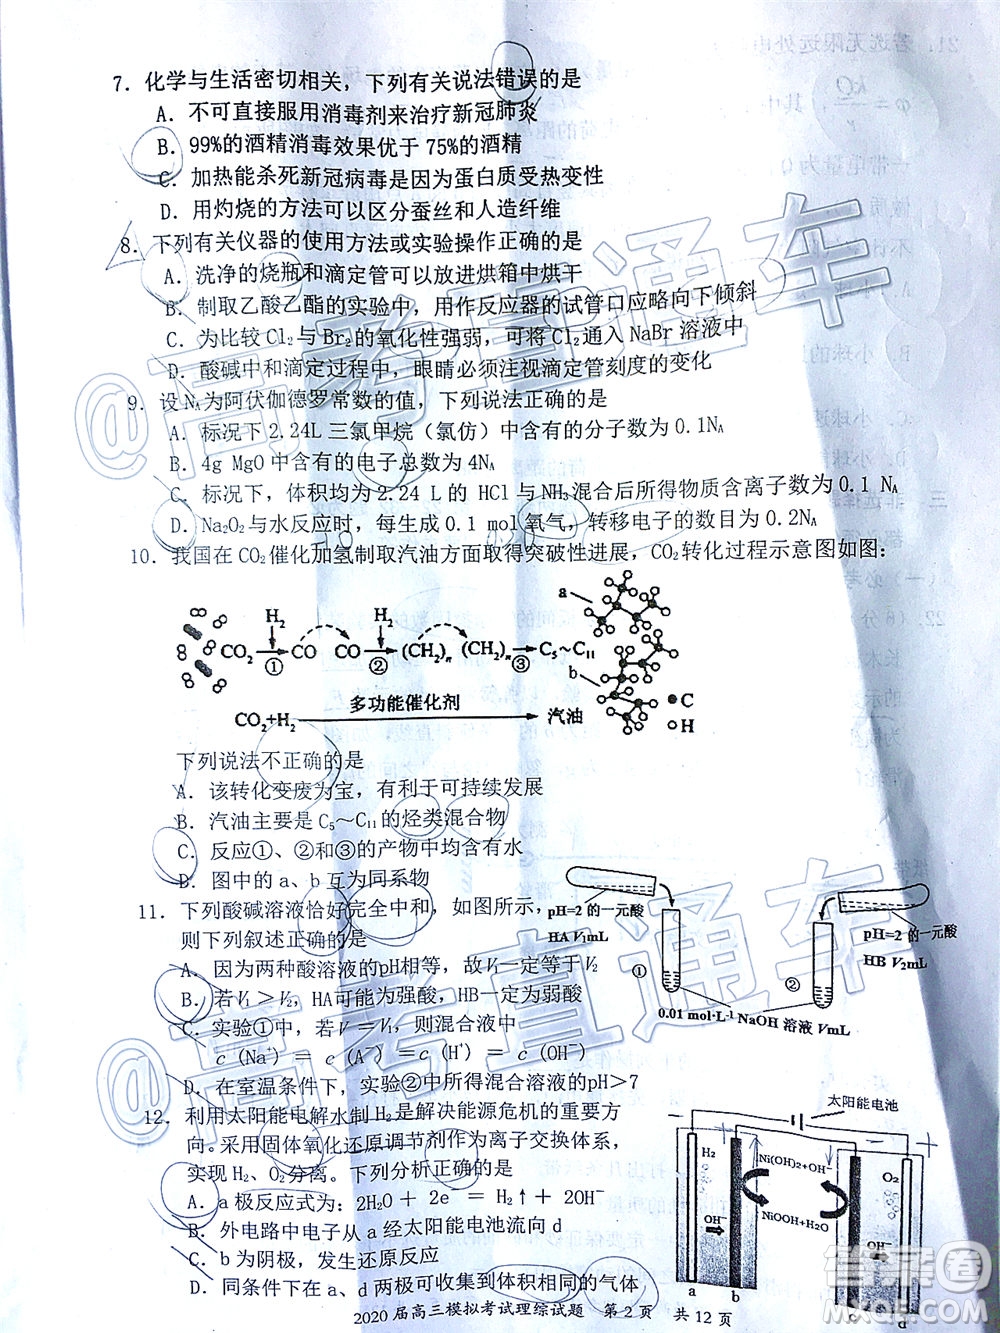 7. 化学与生活密切相关，下列有关说法错误的是
A. 不可直接服用消毒剂来治疗新冠肺炎
B. 99%的酒精消毒效果优于 75%的酒精
C. 加热能杀死新冠病毒是因为蛋白质受热变性
D. 用灼烧的方法可以区分蚕丝和人造纤维
8. 下列有关仪器的使用方法或实验操作正确的是
A. 洗净的烧瓶和滴定管可以放进烘箱中烘干
B. 制取乙酸乙酯的实验中，用作反应器的试管口应略向下倾斜
C. 为比较 Cl₂与 Br₂的氧化性强弱，可将 Cl₂通入 NaBr 溶液中
D. 酸碱中和滴定过程中，眼睛必须注视滴定管刻度的变化
9. 设 Nᴀ为阿伏伽德罗常数的值，下列说法正确的是
A. 标况下 2.24L 三氯甲烷（氯仿）中含有的分子数为 0.1Nᴀ
B. 4g MgO 中含有的电子总数为 4Nᴀ
C. 标况下，体积均为 2.24 L 的 HCl 与 NH₃混合后所得物质含离子数为 0.1 Nᴀ
D. Na₂O₂与水反应时，每生成 0.1 mol 氧气，转移电子的数目为 0.2Nᴀ
10. 我国在 CO₂催化加氢制取汽油方面取得突破性进展，CO₂转化过程示意图如图：
H₂ H₂ a
CO₂ ① CO CO ② (CH₂)ₙ (CH₂)ₙ ③ C₅~C₁₁
b
多功能催化剂
CO₂+H₂ 汽油
C
H
下列说法不正确的是
A. 该转化变废为宝，有利于可持续发展
B. 汽油主要是 C₅～C₁₁的烃类混合物
C. 反应①、②和③的产物中均含有水
D. 图中的 a、b 互为同系物
11. 下列酸碱溶液恰好完全中和，如图所示，
则下列叙述正确的是
A. 因为两种酸溶液的pH相等，故 V₁一定等于 V₂
B. 若 V₁＞V₂，HA可能为强酸，HB一定为弱酸
C. 实验①中，若 V＝V₁，则混合液中
c (Na⁺) ＝ c (A⁻)＝c (H⁺) ＝ c (OH⁻)
D. 在室温条件下，实验②中所得混合溶液的pH＞7
pH=2 的一元酸
HA V₁mL
①
pH=2 的一元酸
HB V₂mL
②
0.01 mol·L⁻¹ NaOH 溶液 VmL
12. 利用太阳能电解水制 H₂是解决能源危机的重要方
向。采用固体氧化还原调节剂作为离子交换体系，
实现 H₂、O₂分离。下列分析正确的是
A. a 极反应式为：2H₂O＋ 2e⁻＝ H₂↑＋ 2OH⁻
B. 外电路中电子从 a 经太阳能电池流向 d
C. b 为阴极，发生还原反应
D. 同条件下在 a、d 两极可收集到体积相等的气体
太阳能电池
H₂
Ni(OH)2+OH⁻
O₂
NiOOH+H₂O
OH⁻
OH⁻
a b c d
2020 届高三模拟考试理综试题 第 2 页 共 12 页
@高考直通车
@高考直通车
答案圈